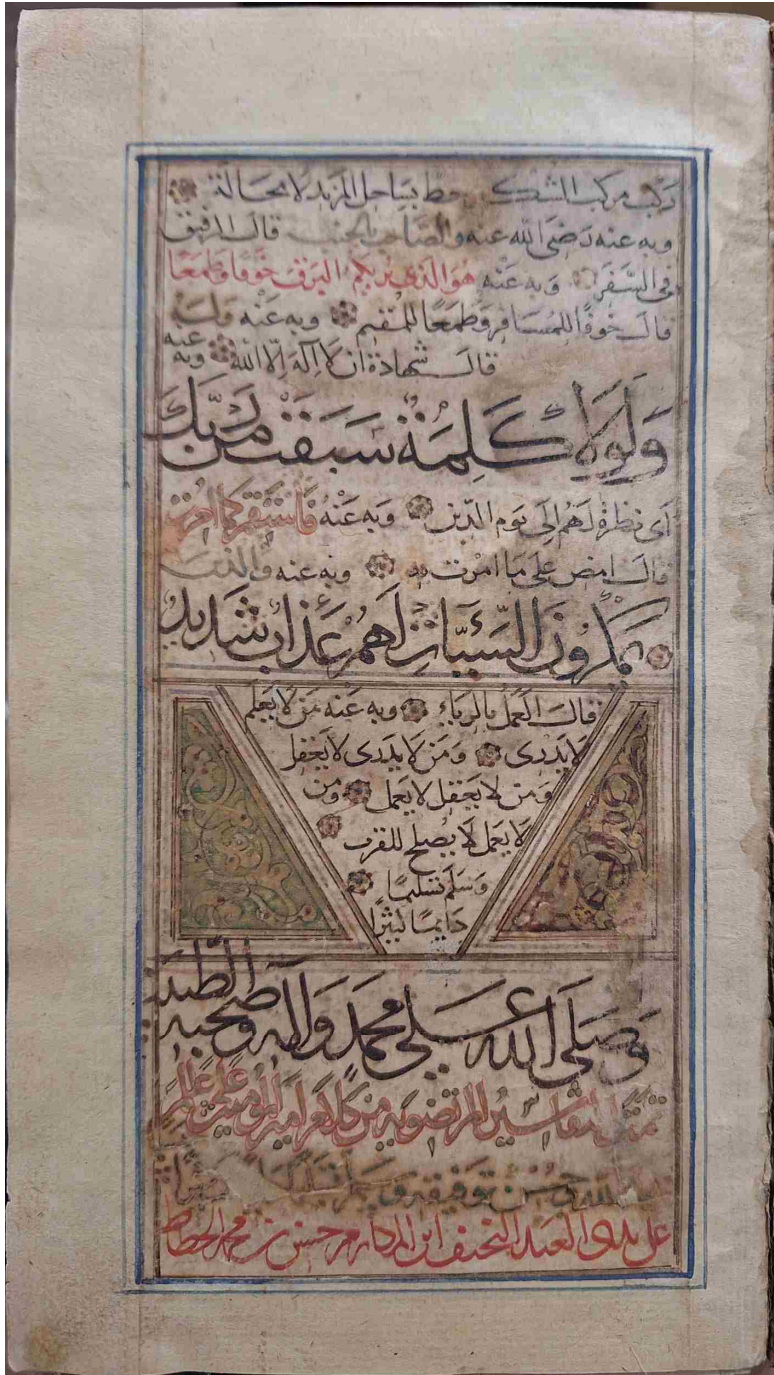 ركب مركب الشك حط بساحل المزيد لا محالة
وبه عنه رضى الله عنه والصاحب بالجنب قال الرفيق
فى السفر وبه عنه هو الذى يريكم البرق خوفا وطمعا
قال خوفا للمسافر وطمعا للمقيم وبه عنه
قال شهادة ان لا اله الا الله وبه عنه
وَلَولا كَلِمَة سَبَقَت مِن رَبك
اى نظرة لهم الى يوم الدين وبه عنه فاستقم كما امرت
قال امض على ما امرت به وبه عنه والذين
يمكرون السيئات لهم عذاب شديد
قال العمل بالرياء وبه عنه من لا يعلم
لا يدرى ومن لا يدرى لا يعقل
ومن لا يعقل لا يعمل ومن
لا يعمل لا يصلح للقرب
وسلم تسليما
دايما كثيرا
وصلى الله على محمد واله وصحبه
تمت التفاسير المرتضوية من كلام امير المؤمنين على
الله وحسن توفيقه
على يدى العبد النحيف حسن بن محمد